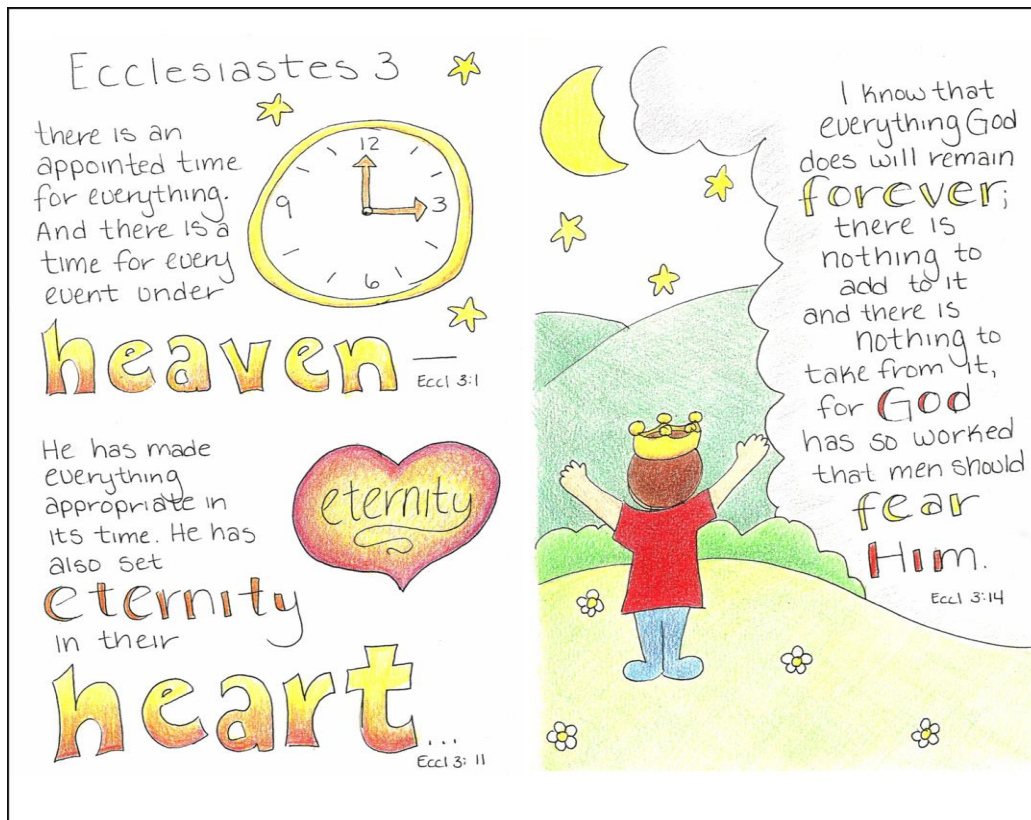 Ecclesiastes 3
there is an
appointed time
for everything.
And there is a
time for every
event under
heaven—
Eccl 3:1
12
3
6
9
He has made
everything
appropriate in
its time. He has
also set
eternity
in their
heart...
Eccl 3:11
eternity
I know that
everything God
does will remain
forever;
there is
nothing to
add to it
and there is
nothing to
take from it,
for God
has so worked
that men should
fear
Him.
Eccl 3:14